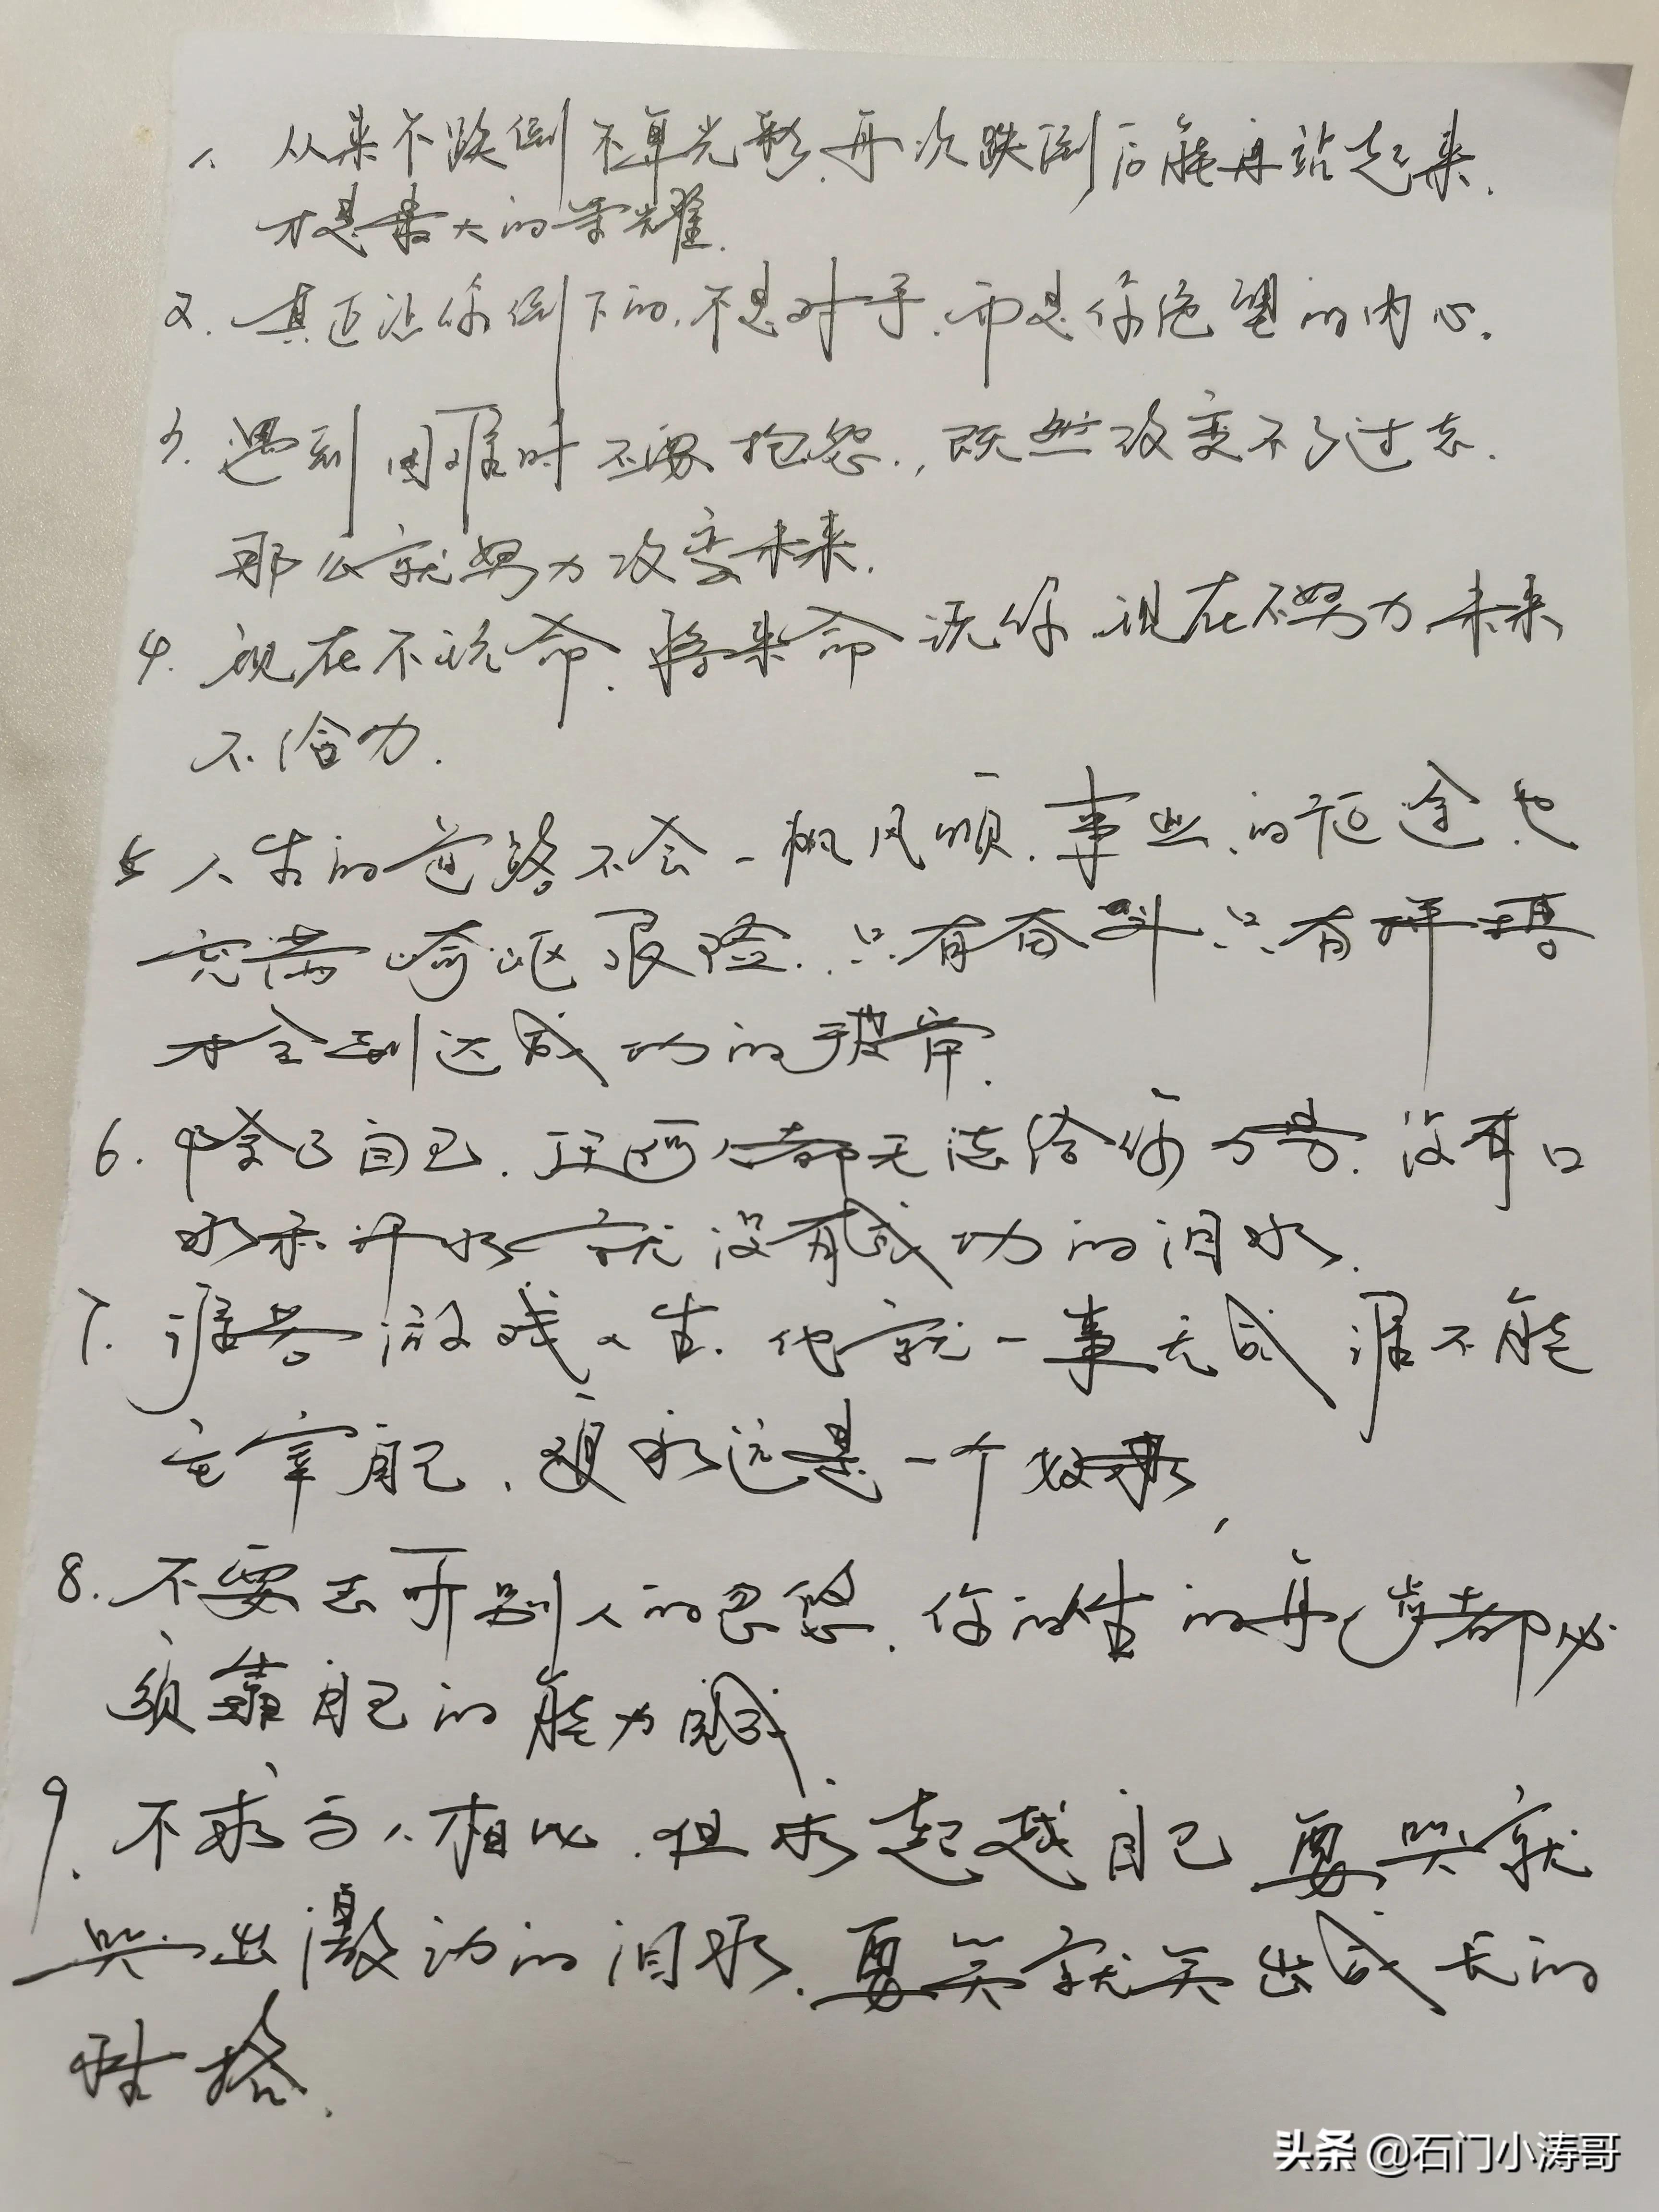 1. 从来不跌倒不算光彩,再次跌倒后能再站起来,
才是最大的荣耀.
2. 真正让你倒下的,不是对手,而是你绝望的内心.
3. 遇到困难时不要抱怨.,既然改变不了过去.
那么就努力改变未来.
4. 现在不玩命.将来命玩你.现在不努力,未来
不给力.
5 人生的道路不会一帆风顺.事业的征途也
充满崎岖艰险.只有奋斗.只有拼搏
才会到达成功的彼岸.
6. 除了自己.任何人都无法给你力量.没有口
水和汗水就没有成功的泪水.
7. 谁若游戏人生.他就一事无成 谁不能
主宰自己.便永远是一个奴隶,
8. 不要去听别人的忽悠.你人生的每一步都必
须靠自己的能力完成
9. 不求与人相比.但求超越自己 要哭就
哭出激动的泪水.要笑就笑出成长的
性格.
头条 @石门小涛哥